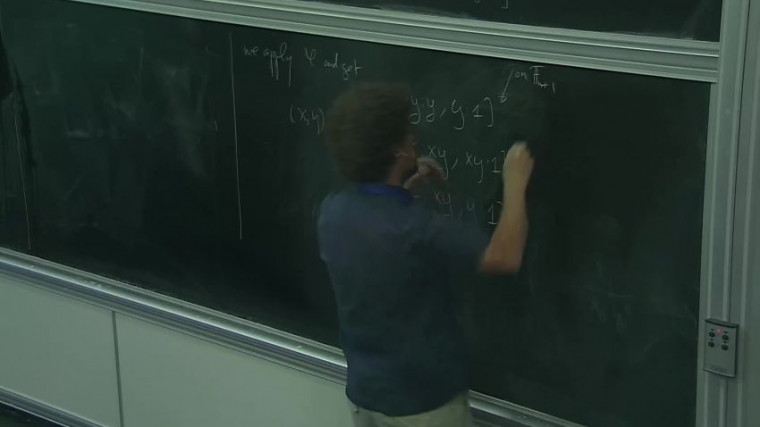 we apply φ and get
on 𝔽ₙ₊₁
(x,y) y·y, y·1]
xy, xy·1]
xy, y·1]